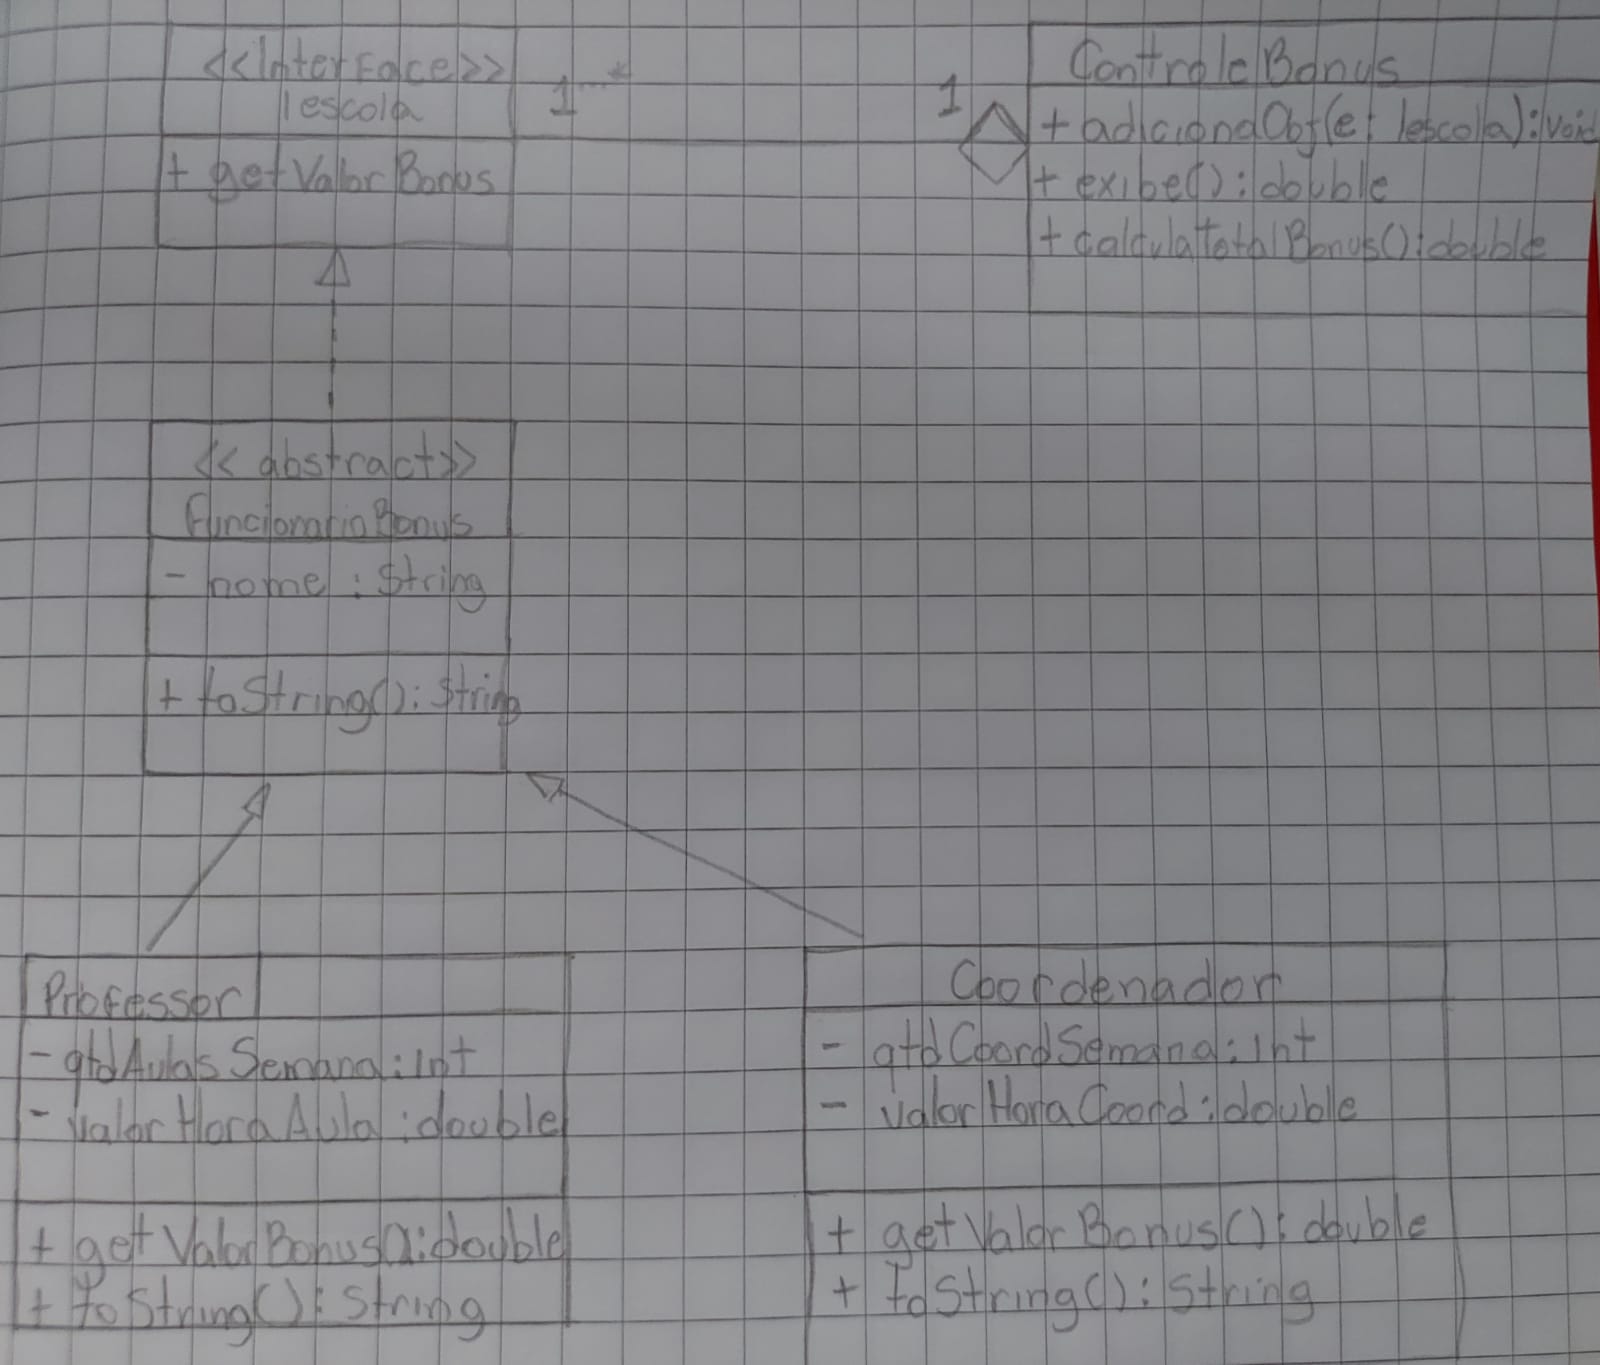 <<Interface>>
Iescola
+ getValorBonus
1...*
1
ControleBonus
+ adicionaObj(e: Iescola): void
+ exibe(): double
+ calculaTotalBonus(): double
<<abstract>>
FuncionarioBonus
- nome: String
+ toString(): String
Professor
- qtdAulasSemana: int
- valorHoraAula: double
+ getValorBonus(): double
+ toString(): String
Coordenador
- qtdCoordSemana: int
- valorHoraCoord: double
+ getValorBonus(): double
+ toString(): String